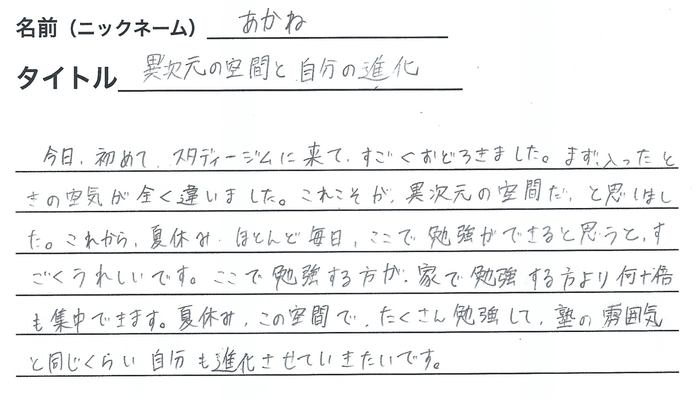 名前(ニックネーム) あかね
タイトル 異次元の空間と自分の進化
今日、初めて、スタディージムに来て、すごくおどろきました。まず、入ったと
きの空気が全く違いました。これこそが、異次元の空間だ、と思いまし
た。これから、夏休み、ほとんど毎日、ここで勉強ができると思うと、す
ごくうれしいです。ここで勉強する方が、家で勉強する方より何十倍
も集中できます。夏休み、この空間で、たくさん勉強して、塾の雰囲気
と同じくらい自分も進化させていきたいです。